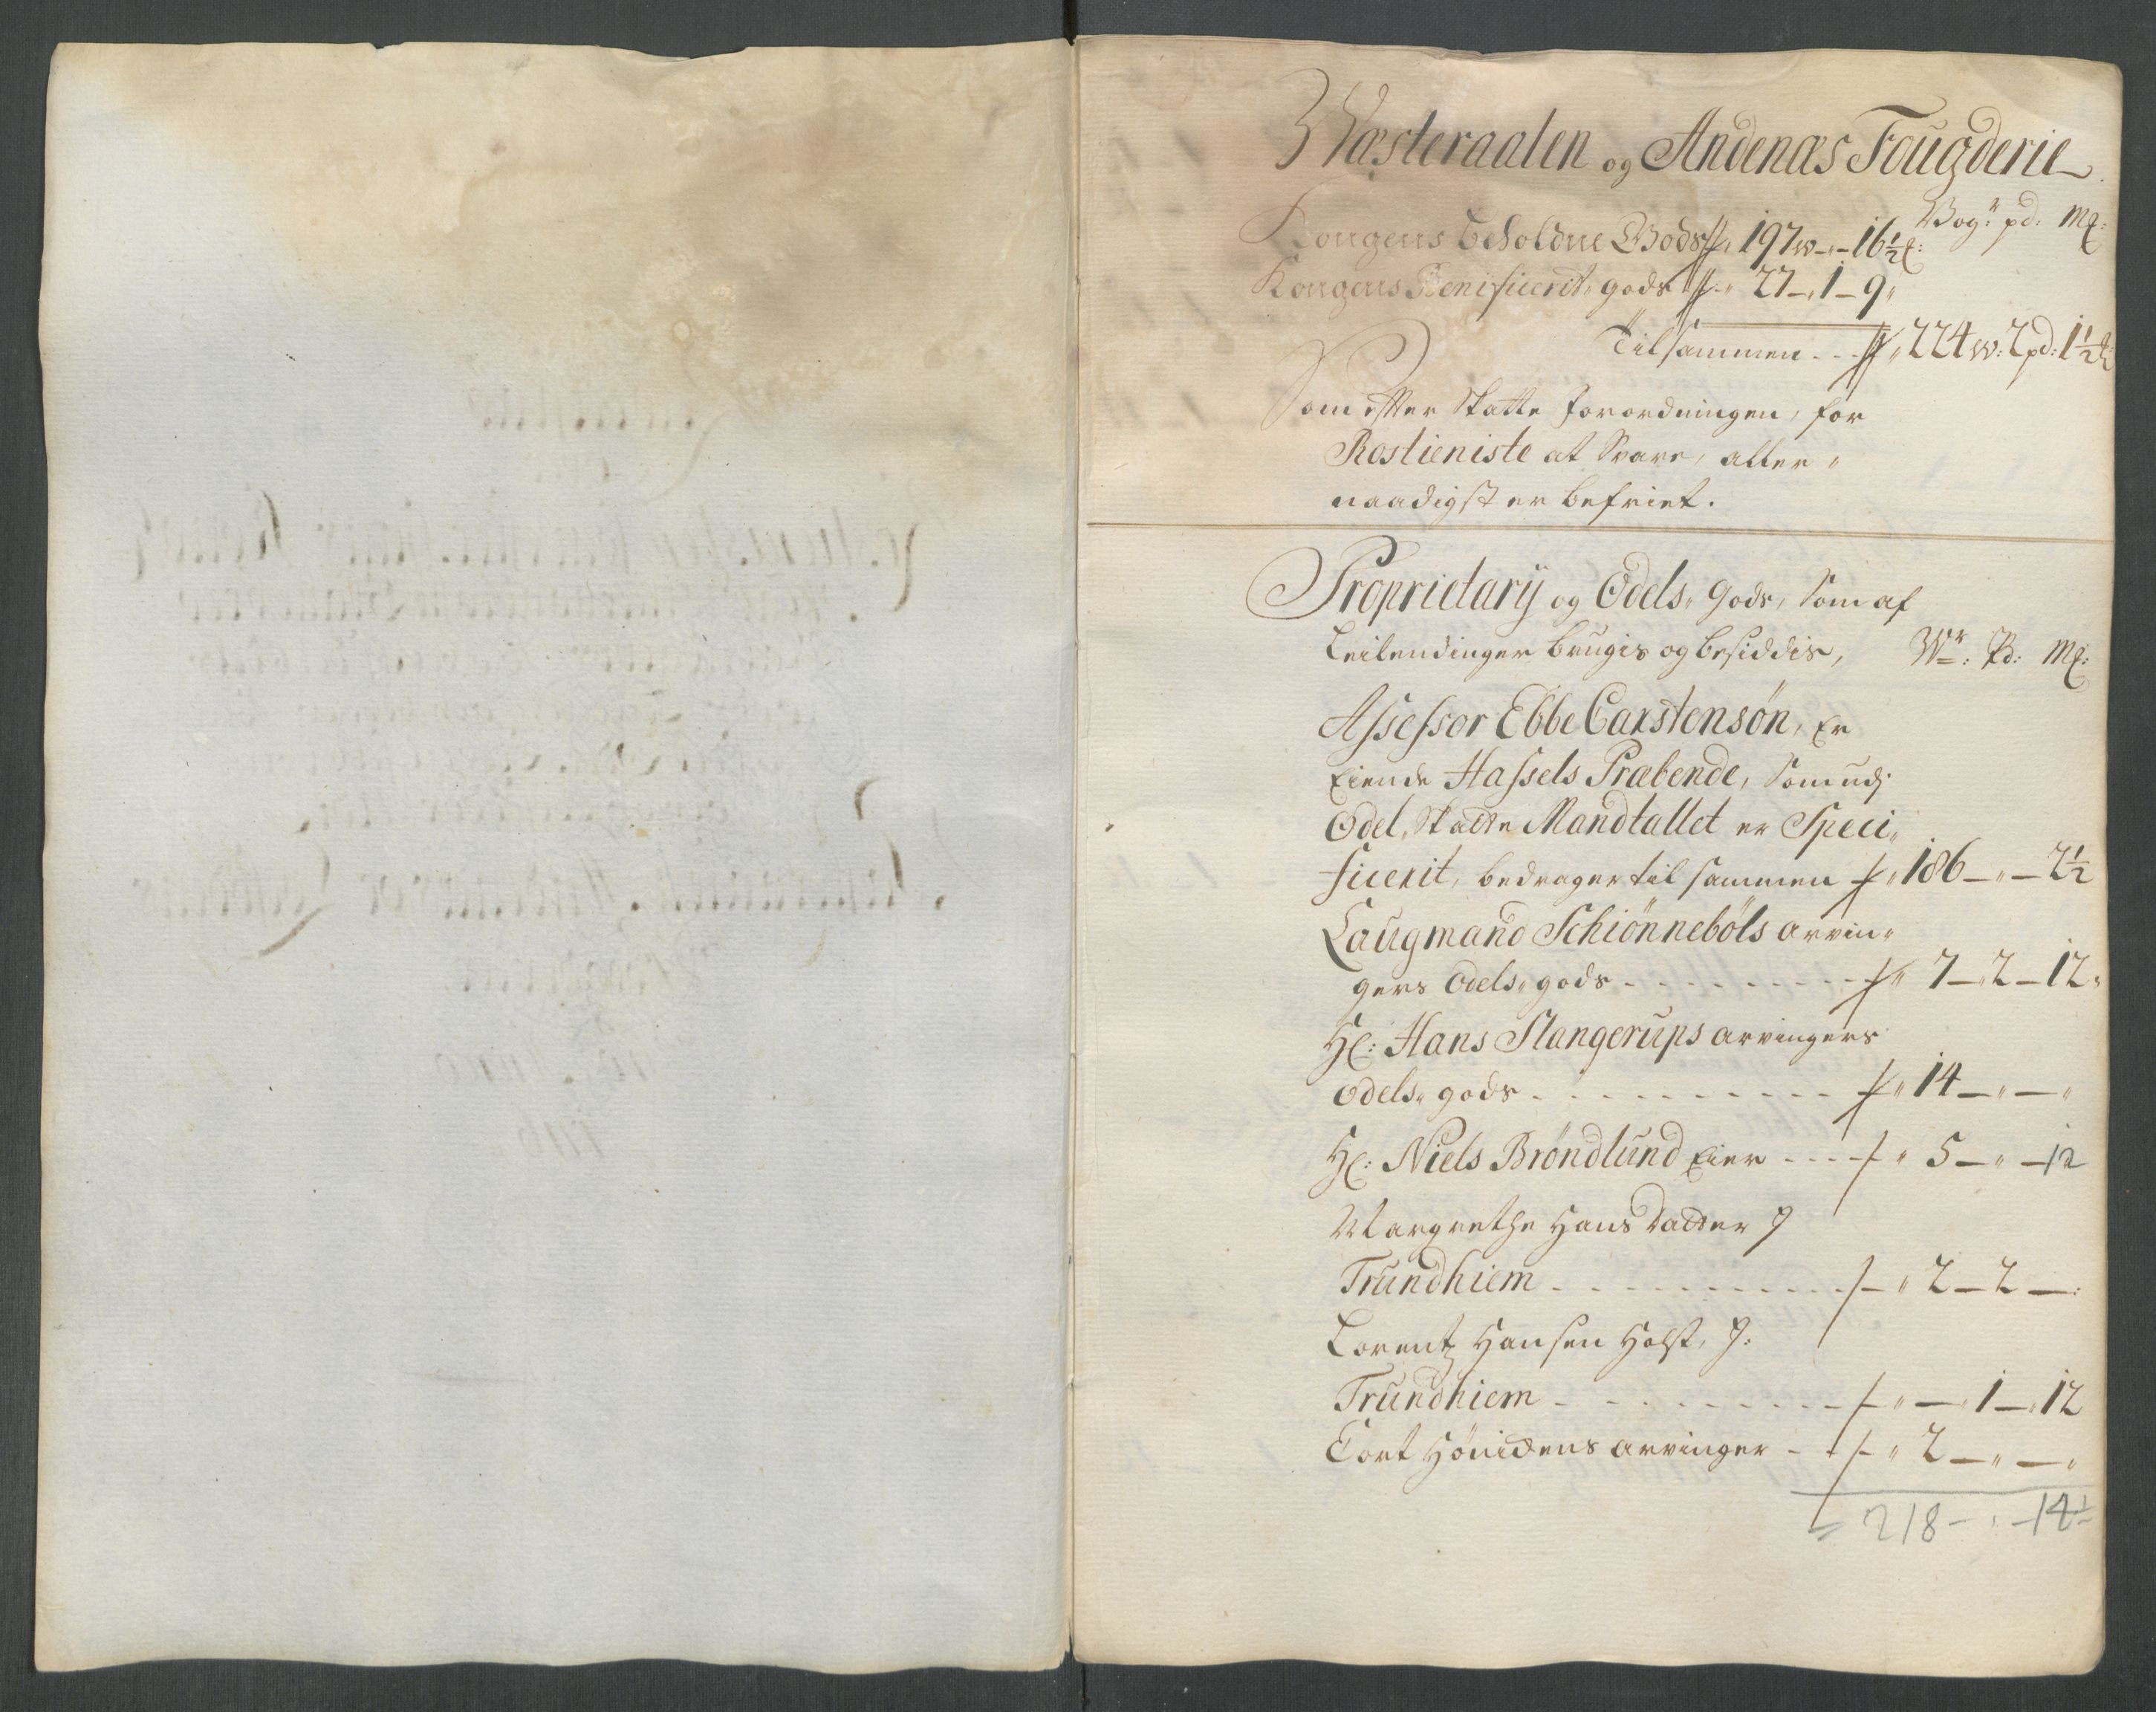 Wæsteraalen og Andenæs Fougderie
Wog: pd: Mk:
Kongens beholdne Gods 197 w - „ - 16½ :
Kongens Benificerit gods „ 27 - 1 - 9 „
Tilsammen - - - „ 224 w: 2 pd: 1½
Som efter Skatte forordningen, for
Rostieniste at Svare, aller„
naadigst er befriet.
Proprietary og Odels„ Gods, Som af
Leilendinger brugis og besiddis, Wr: Pd: Mk:
Assessor Ebbe Carstensøn, Er
Eiende Hassels Præbende, Som udj
Odel„ Skatte Mandtallet er Speci„
ficerit, bedrager til sammen „ 186 - „ - 2½
Laugmand Schiønnebøls arvin„
gers Odels„ gods - - - - - - - - - „ 7 - 2 - 12 „
Hr: Hans Slangerups arvingers
Odels„ gods - - - - - - - - - - „ 14 - „ - „
Hr: Niels Brøndlund Eier - - - - „ 5 - „ - 12
Margrethe Hans Datter J
Trundhiem - - - - - - - - - - „ 2 - 2 - :
Lorentz Hansen Holst, J:
Trundhiem - - - - - - - - - „ - 1 - 12
Cort Hønidens arvinger - - „ 2 - „ - „
218 - „ - 14½